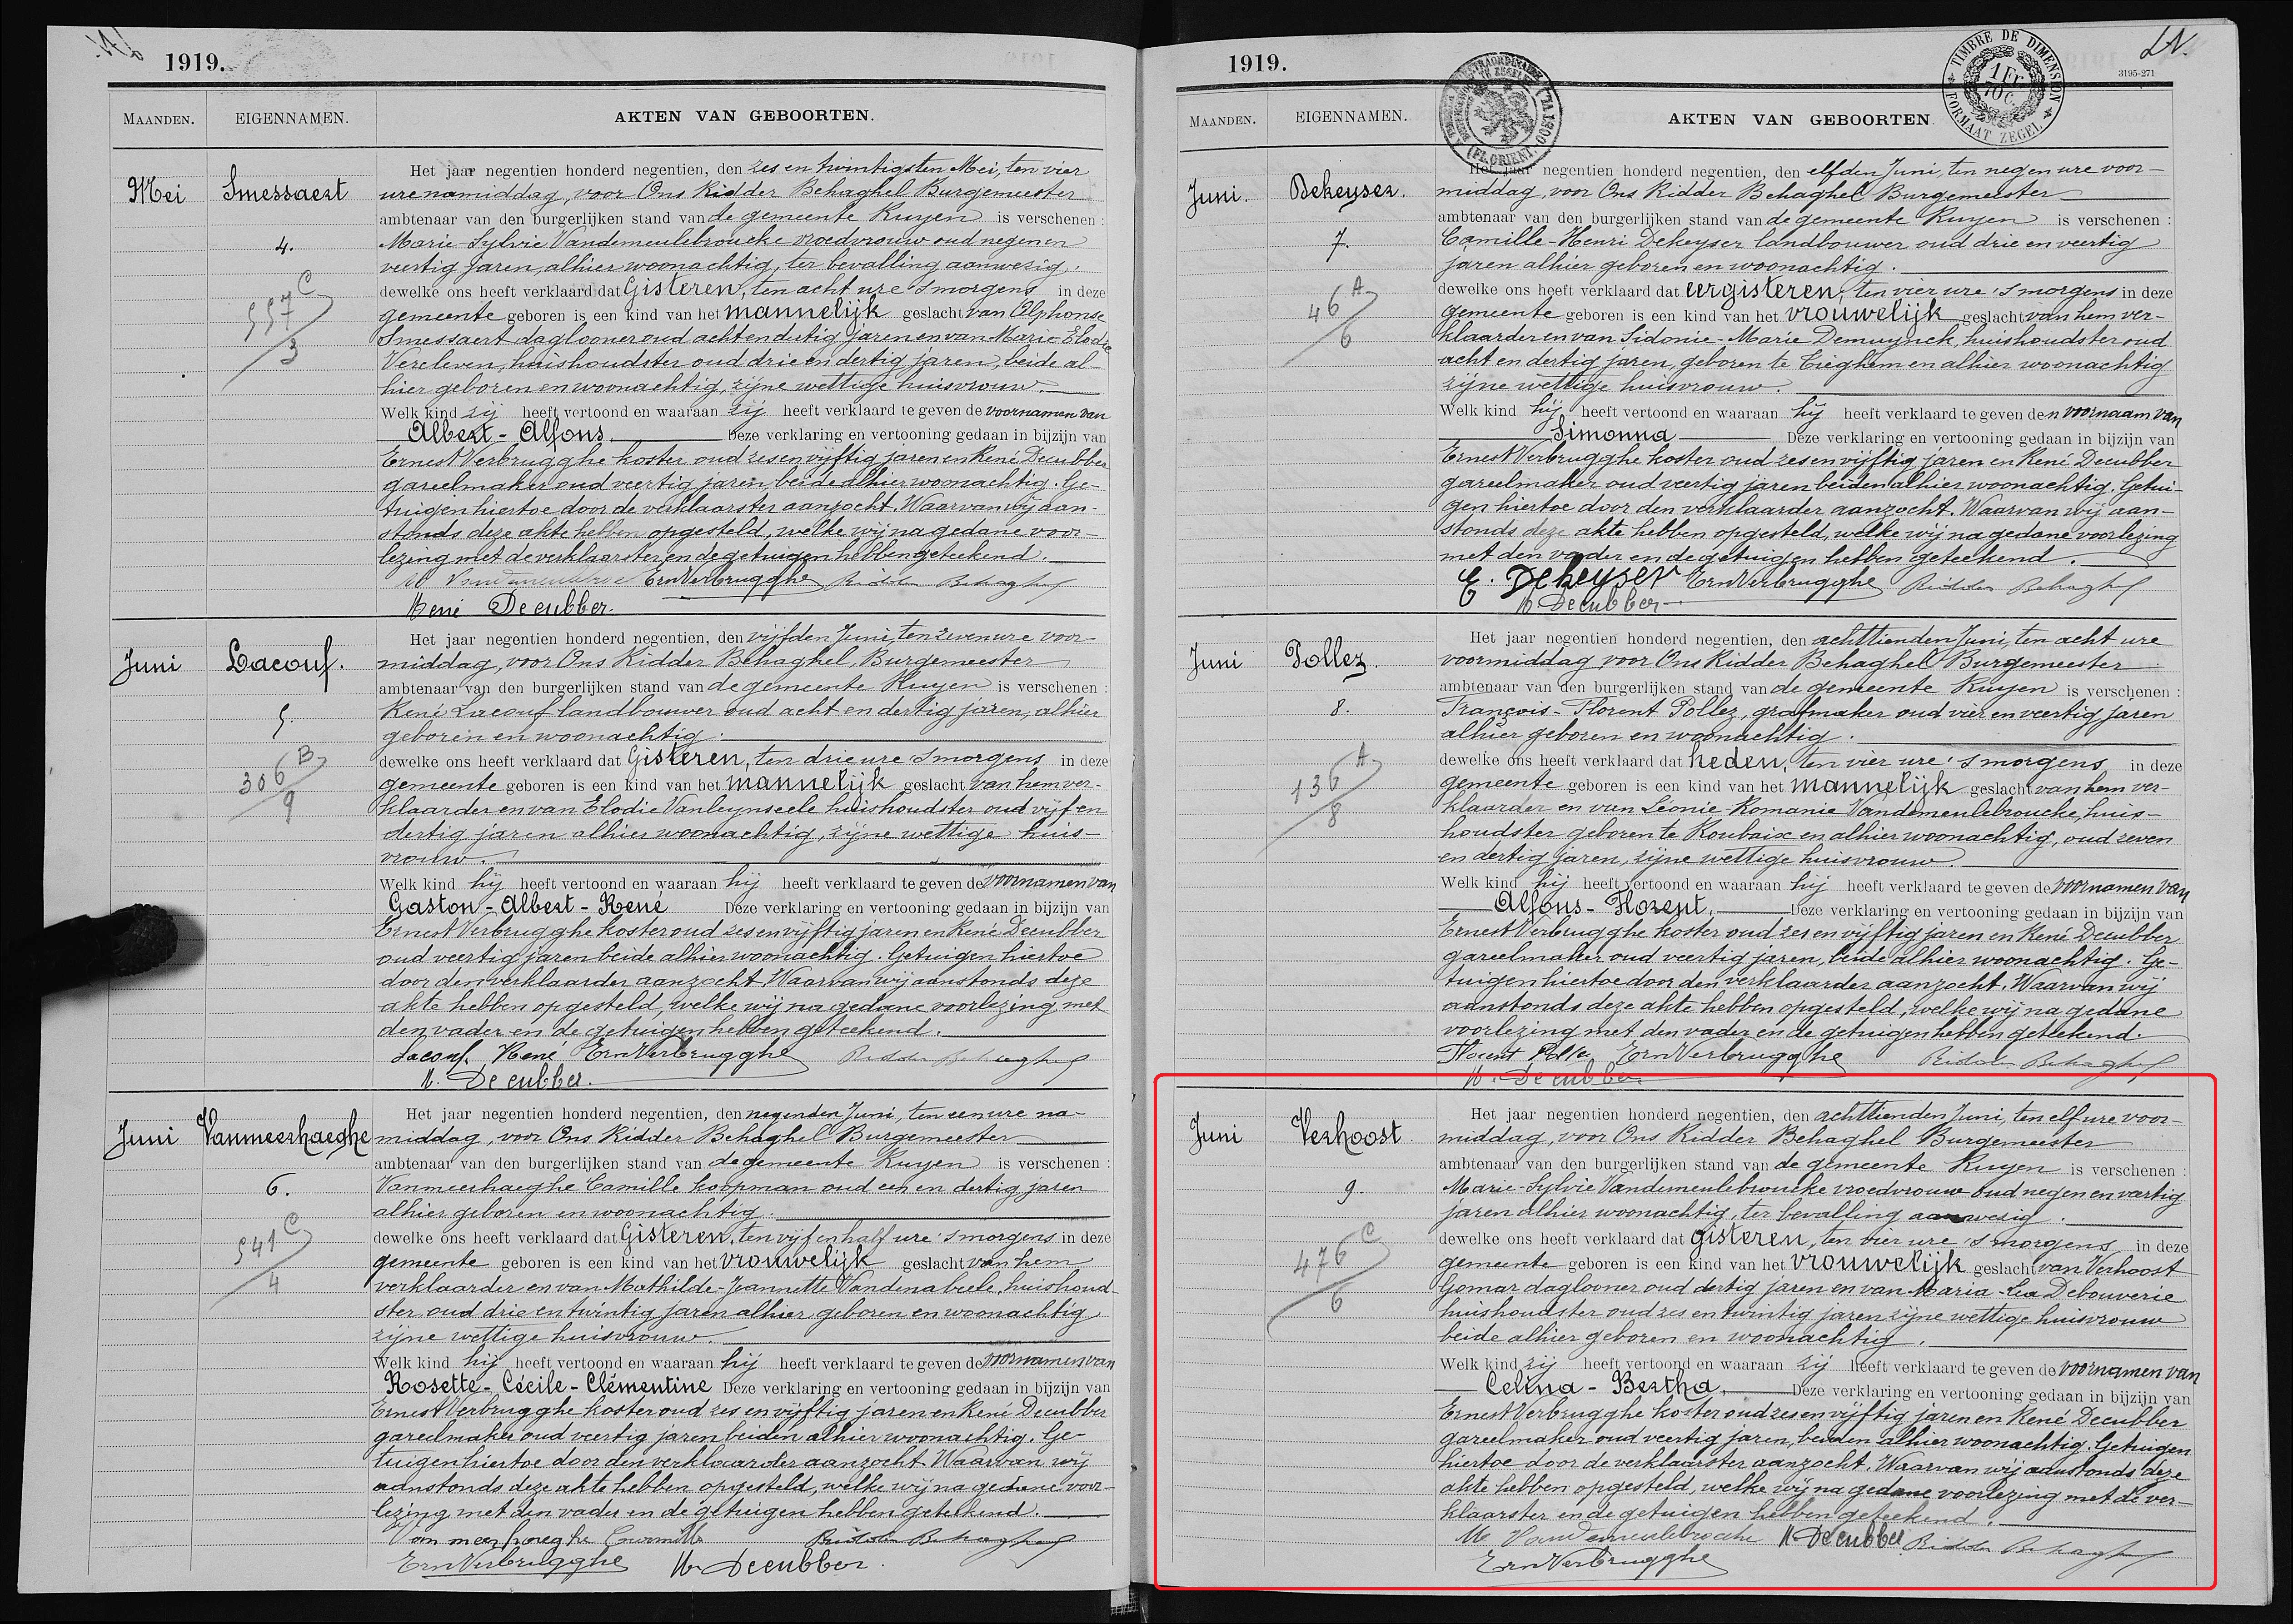 1919.
MAANDEN. EIGENNAMEN. AKTEN VAN GEBOORTEN.
Mei Smessaert
4.
557 C
3
Het jaar negentien honderd negentien, den zes en twintigsten Mei, ten vier
ure namiddag, voor Ons Ridder Behaghel Burgemeester
ambtenaar van den burgerlijken stand van de gemeente Ruyen is verschenen :
Marie-Sylvie Vandemeulebroucke vroedvrouw oud negen en
veertig jaren, alhier woonachtig, ter bevalling aanwezig.
dewelke ons heeft verklaard dat Gisteren, ten acht ure 's morgens in deze
gemeente geboren is een kind van het mannelijk geslacht van Alphonse
Smessaert daglooner oud acht en dertig jaren en van Marie-Elodie
Vereleven, huishoudster oud drie en dertig jaren, beide al-
hier geboren en woonachtig, zijne wettige huisvrouw.
Welk kind zij heeft vertoond en waaraan zij heeft verklaard te geven de voornamen van
Albert-Alfons. Deze verklaring en vertooning gedaan in bijzijn van
Ernest Verbrugghe koster oud zes en vijftig jaren en René Decubber
gareelmaker oud veertig jaren, beide alhier woonachtig. Ge-
tuigen hiertoe door de verklaarster aanzocht. Waarvan wij aan-
stonds deze akte hebben opgesteld, welke wij na gedane voor-
lezing met de verklaarster en de getuigen hebben geteekend.
Ern Verbrugghe Ridder Behaghel
René Decubber.
Juni Lacouf.
5.
306 B
9
Het jaar negentien honderd negentien, den vijfden Juni, ten zeven ure voor-
middag, voor Ons Ridder Behaghel, Burgemeester
ambtenaar van den burgerlijken stand van de gemeente Ruyen is verschenen :
René Lacouf landbouwer oud acht en dertig jaren, alhier
geboren en woonachtig.
dewelke ons heeft verklaard dat Gisteren, ten drie ure 's morgens in deze
gemeente geboren is een kind van het mannelijk geslacht van hem ver-
klaarder en van Elodie Vanleynseele huishoudster oud vijf en
dertig jaren alhier woonachtig, zijne wettige huis-
vrouw.
Welk kind hij heeft vertoond en waaraan hij heeft verklaard te geven de voornamen van
Gaston-Albert-René Deze verklaring en vertooning gedaan in bijzijn van
Ernest Verbrugghe koster oud zes en vijftig jaren en René Decubber
oud veertig jaren beide alhier woonachtig. Getuigen hiertoe
door den verklaarder aanzocht. Waarvan wij aanstonds deze
akte hebben opgesteld, welke wij na gedane voorlezing met
den vader en de getuigen hebben geteekend.
Lacouf René Ern Verbrugghe Ridder Behaghel
R. Decubber.
Juni Vanmeerhaeghe
6.
541 C
4
Het jaar negentien honderd negentien, den negenden Juni, ten een ure na-
middag, voor Ons Ridder Behaghel Burgemeester
ambtenaar van den burgerlijken stand van de gemeente Ruyen is verschenen :
Vanmeerhaeghe Camille koopman oud een en dertig jaren
alhier geboren en woonachtig.
dewelke ons heeft verklaard dat Gisteren, ten vijf en half ure 's morgens in deze
gemeente geboren is een kind van het vrouwelijk geslacht van hem
verklaarder en van Mathilde-Jeannette Vandenabeele, huishoud-
ster oud drie en twintig jaren alhier geboren en woonachtig
zijne wettige huisvrouw.
Welk kind hij heeft vertoond en waaraan hij heeft verklaard te geven de voornamen van
Rosette-Cécile-Clémentine Deze verklaring en vertooning gedaan in bijzijn van
Ernest Verbrugghe koster oud zes en vijftig jaren en René Decubber
gareelmaker oud veertig jaren beiden alhier woonachtig. Ge-
tuigen hiertoe door den verklaarder aanzocht. Waarvan wij
aanstonds deze akte hebben opgesteld, welke wij na gedane voor-
lezing met den vader en de getuigen hebben geteekend.
Vanmeerhaeghe Camille Ridder Behaghel
Ern Verbrugghe R. Decubber
1919.
3195-271
TIMBRE DE DIMENSION
FORMAAT ZEGEL
1 Fr.
10 C.
MAANDEN. EIGENNAMEN. AKTEN VAN GEBOORTEN
Juni. Dekeyser.
7.
46 A
6
Het jaar negentien honderd negentien, den elfden Juni, ten negen ure voor-
middag, voor Ons Ridder Behaghel Burgemeester
ambtenaar van den burgerlijken stand van de gemeente Ruyen is verschenen :
Camille-Henri Dekeyser landbouwer oud drie en veertig
jaren alhier geboren en woonachtig.
dewelke ons heeft verklaard dat eergisteren, ten vier ure 's morgens in deze
gemeente geboren is een kind van het vrouwelijk geslacht van hem ver-
klaarder en van Sidonie-Marie Demuynck, huishoudster oud
acht en dertig jaren, geboren te Tieghem en alhier woonachtig
zijne wettige huisvrouw.
Welk kind hij heeft vertoond en waaraan hij heeft verklaard te geven den voornaam van
Simonna Deze verklaring en vertooning gedaan in bijzijn van
Ernest Verbrugghe koster oud zes en vijftig jaren en René Decubber
gareelmaker oud veertig jaren beiden alhier woonachtig. Getui-
gen hiertoe door den verklaarder aanzocht. Waarvan wij aan-
stonds deze akte hebben opgesteld, welke wij na gedane voorlezing
met den vader en de getuigen hebben geteekend.
C. Dekeyser Ern Verbrugghe Ridder Behaghel
R. Decubber
Juni Pollez.
8.
136 A
8
Het jaar negentien honderd negentien, den achttienden Juni, ten acht ure
voormiddag voor Ons Ridder Behaghel Burgemeester
ambtenaar van den burgerlijken stand van de gemeente Ruyen is verschenen :
François-Florent Pollez, grafmaker oud vier en veertig jaren
alhier geboren en woonachtig.
dewelke ons heeft verklaard dat heden, ten vier ure 's morgens in deze
gemeente geboren is een kind van het mannelijk geslacht van hem ver-
klaarder en van Léonie-Romanie Vandemeulebroucke, huis-
houdster geboren te Roubaix en alhier woonachtig, oud zeven
en dertig jaren, zijne wettige huisvrouw.
Welk kind hij heeft vertoond en waaraan hij heeft verklaard te geven de voornamen van
Alfons-Florent. Deze verklaring en vertooning gedaan in bijzijn van
Ernest Verbrugghe koster oud zes en vijftig jaren en René Decubber
gareelmaker oud veertig jaren, beide alhier woonachtig. Ge-
tuigen hiertoe door den verklaarder aanzocht. Waarvan wij
aanstonds deze akte hebben opgesteld, welke wij na gedane
voorlezing met den vader en de getuigen hebben geteekend.
Florent Pollez Ern Verbrugghe Ridder Behaghel
R. Decubber
Juni Verhoost.
9.
476 C
6
Het jaar negentien honderd negentien, den achttienden Juni, ten elf ure voor-
middag, voor Ons Ridder Behaghel Burgemeester
ambtenaar van den burgerlijken stand van de gemeente Ruyen is verschenen :
Marie-Sylvie Vandemeulebroucke vroedvrouw oud negen en veertig
jaren alhier woonachtig, ter bevalling aanwezig.
dewelke ons heeft verklaard dat gisteren, ten vier ure 's morgens in deze
gemeente geboren is een kind van het vrouwelijk geslacht van Verhoost
Gomar daglooner oud dertig jaren en van Maria-Lea Debouverie
huishoudster oud zes en twintig jaren zijne wettige huisvrouw
beide alhier geboren en woonachtig.
Welk kind zij heeft vertoond en waaraan zij heeft verklaard te geven de voornamen van
Celina-Bertha. Deze verklaring en vertooning gedaan in bijzijn van
Ernest Verbrugghe koster oud zes en vijftig jaren en René Decubber
gareelmaker oud veertig jaren, beiden alhier woonachtig. Getuigen
hiertoe door de verklaarster aanzocht. Waarvan wij aanstonds deze
akte hebben opgesteld, welke wij na gedane voorlezing met de ver-
klaarster en de getuigen hebben geteekend.
M Vandemeulebroucke R Decubber Ridder Behaghel
Ern Verbrugghe